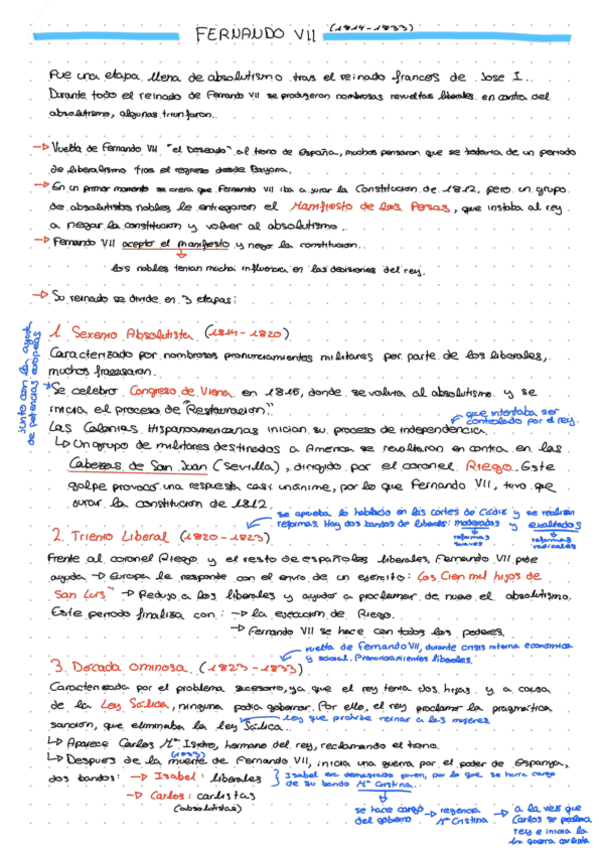 FERNANDO VII (1814-1833)
Fue una etapa llena de absolutismo tras el reinado frances de Jose I.
Durante todo el reinado de Fernando VII se produjeron nombrosas revueltas liberales en contra del
absolutismo, algunas triunfaron.
→ Vuelta de Fernando VII "el Deseado" al trono de España, muchos pensaron que se trataria de un periodo
de liberalismo tras el regreso desde Bayona.
→ En un primer momento se creia que Fernando VII iba a jurar la Constitucion de 1812, pero un grupo
de absolutistas nobles le entregaron el Manifiesto de los Persas, que instaba al rey
a negar la constitucion y volver al absolutismo.
→ Fernando VII acepto el manifiesto y nego la constitucion.
los nobles tenian mucha influencia en las decisiones del rey.
→ Su reinado se divide en 3 etapas:
1. Sexenio Absolutista (1814-1820)
Caracterizado por nombrosos pronunciamientos militares por parte de los liberales,
muchos fracasaron.
junto con la ayuda
de potencias europeas
Se celebro Congreso de Viena en 1815, donde se volvia al absolutismo y se
inicia el proceso de "Restauracion".
que intentaba ser
controlado por el rey.
Las Colonias Hispanoamericanas inician su proceso de independencia.
↳ Un grupo de militares destinados a America se revoltaron en contra en las
Cabezas de San Juan (Sevilla), dirigido por el coronel Riego. Este
golpe provoco una respuesta casi unánime, por lo que Fernando VII, tuvo que
jurar la constitucion de 1812.
se aprueba lo hablado en las cortes de Cádiz y se realizan
reformas. Hay dos bandos de liberales: moderados y exaltados
reformas
suaves
reformas
radicales
2. Trienio Liberal (1820-1823)
Frente al coronel Riego y el resto de españoles liberales, Fernando VII pide
ayuda → Europa le responde con el envio de un ejercito: Los Cien mil hijos de
San Luis → Redujo a los liberales y ayudar a proclamar de nuevo el absolutismo.
Este periodo finaliza con: → la ejecucion de Riego.
→ Fernando VII se hace con todos los poderes.
vuelta de Fernando VII, durante crisis interna economica
y social. Pronunciamientos liberales.
3. Decada Ominosa (1823-1833)
Caracterizada por el problema sucesorio, ya que el rey tenia dos hijas y a causa
de la Ley Sálica, ninguna podia gobernar. Por ello, el rey proclamo la pragmatica
sancion, que eliminaba la ley Sálica.
Ley que prohibe reinar a las mujeres
↳ Aparece Carlos Mª Isidro, hermano del rey, reclamando el trono.
↳ Despues de la muerte de Fernando VII, inicia una guerra por el poder de Espanya,
(1833)
dos bandos: → Isabel: liberales
Isabel era demasiado joven, por lo que se haria cargo
de su bando Mª Cristina.
→ Carlos: carlistas
(absolutistas)
se hace cargo
del gobierno
→ regencia
Mª Cristina
→ a la vez que
Carlos se proclama
rey e inicia la
1a guerra carlista